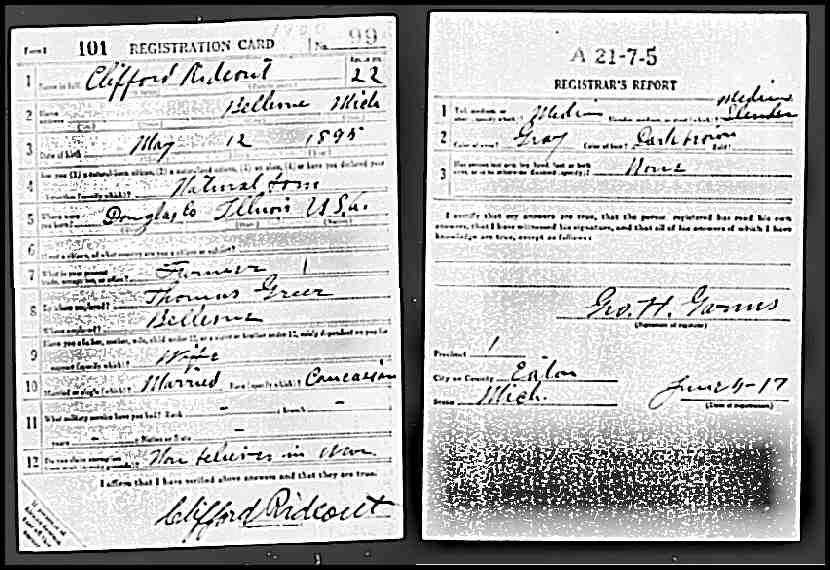 Form 1 101 REGISTRATION CARD No. 99
1 Name in full Clifford Rideout Age, in yrs. 22
2 Home address Bellevue Mich
3 Date of birth May 12 1895
4 Are you (1) a natural-born citizen, (2) a naturalized citizen, (3) an alien, (4) or have you declared your
intention (specify which)? Natural born
5 Where were you born? Douglas Co Illinois U.S.A.
6 If not a citizen, of what country are you a citizen or subject?
7 What is your present trade, occupation, or office? Farmer 1
8 By whom employed? Thomas Greer
Where employed? Bellevue
9 Have you a father, mother, wife, child under 12, or a sister or brother under 12, solely dependent on you for
support (specify which)? Wife
10 Married or single (which)? Married Race (specify which)? Caucasian
11 What military service have you had? Rank - branch -
years - Nation or State -
12 Do you claim exemption from draft (specify grounds)? Non believer in War
I affirm that I have verified above answers and that they are true.
Clifford Rideout
A 21-7-5
REGISTRAR'S REPORT
1 Tall, medium, or short (specify which)? Medium Slender, medium, or stout (which)? Medium Slender
2 Color of eyes? Gray Color of hair? Dark brown Bald?
3 Has person lost arm, leg, hand, foot, or both eyes, or is he otherwise disabled (specify)? None
I certify that my answers are true, that the person registered has read his own
answers, that I have witnessed his signature, and that all of his answers of which I have
knowledge are true, except as follows:
Geo. H.
(Signature of registrar)
Precinct 1
City or County Eaton
State Mich. June 5-17
(Date of registration)